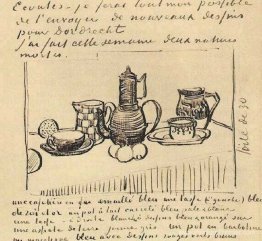 Ecoutes - je ferai tout mon possible
de t'envoyer de nouveaux dessins
pour Dordrecht
J'ai fait cette semaine deux natures
mortes.
toile de 30
une cafetière en fer émaillé bleu une tasse (à gauche) bleu
un pot à lait carrelé bleu
une tasse à droite blanche dessins bleu orangé sur
une assiette de terre jaune gris un pot en barbotine
bleu avec dessins rouges verts bruns